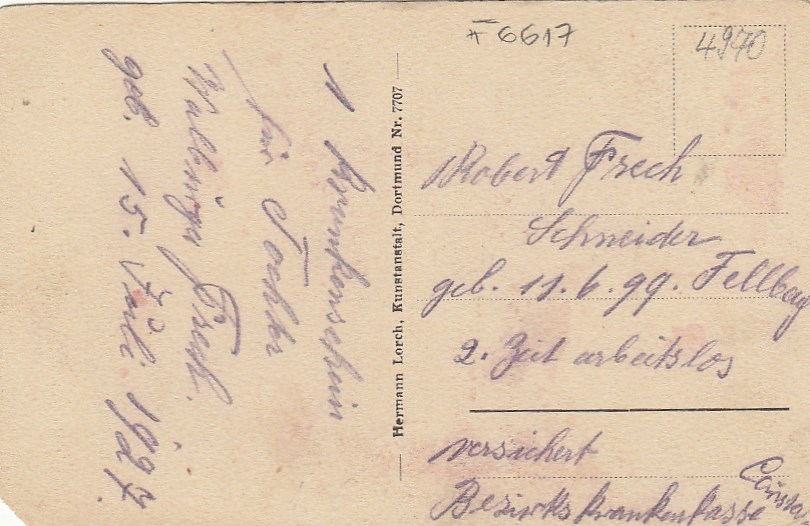 6617
4970
1 Krankenschein
für Tochter
Walburga Frech.
geb. 15. Juli 1927.
Hermann Lorch, Kunstanstalt, Dortmund Nr. 7707
Robert Frech
Schneider
geb. 11.6.99. Fellbach
z. Zeit arbeitslos
versichert
Bezirkskrankenkasse